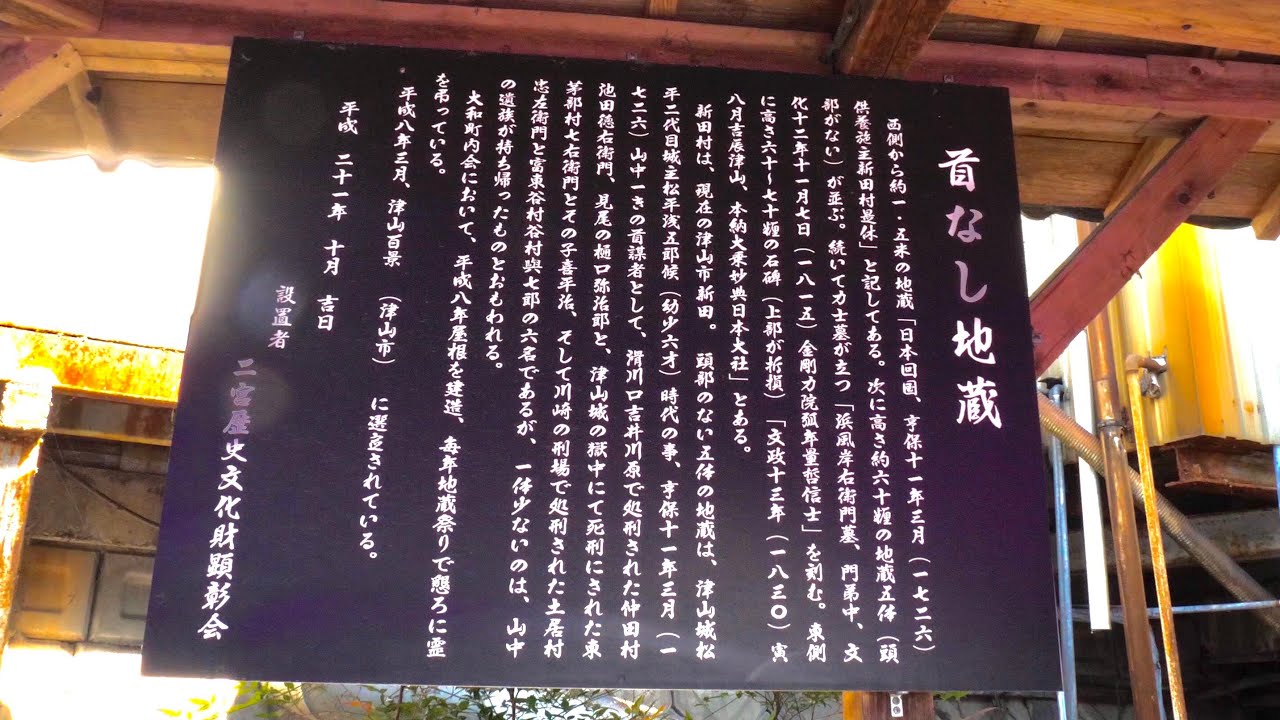 首なし地蔵
西側から約一・五米の地蔵「日本回国、享保十一年三月(一七二六)
供養施主新田村是休」と記してある。次に高さ約六十糎の地蔵五体(頭
部がない)が並ぶ。続いて力士墓が立つ「浜風岸右衛門墓、門弟中、文
化十二年十一月七日(一八一五)金剛力院弧年量哲信士」を刻む。東側
に高さ六十〜七十糎の石碑(上部が折損)「文政十三年(一八三〇)寅
八月吉辰津山、本納大乗妙典日本大社」とある。
新田村は、現在の津山市新田。頭部のない五体の地蔵は、津山城松
平二代目城主松平浅五郎候(幼少六才)時代の事、享保十一年三月(一
七二六)山中一きの首謀者として、滑川口吉井川原で処刑された仲田村
池田徳右衛門、見尾の樋口弥治郎と、津山城の獄中にて死刑にされた東
茅部村七右衛門とその子喜平治、そして川崎の刑場で処刑された土居村
忠左衛門と富東谷村谷村與七郎の六名であるが、一体少ないのは、山中
の遺族が持ち帰ったものとおもわれる。
大和町内会において、平成八年屋根を建造、毎年地蔵祭りで懇ろに霊
を弔っている。
平成八年三月、津山百景 (津山市) に選定されている。
平成 二十一年 十月 吉日
設置者
二宮歴史文化財顕彰会